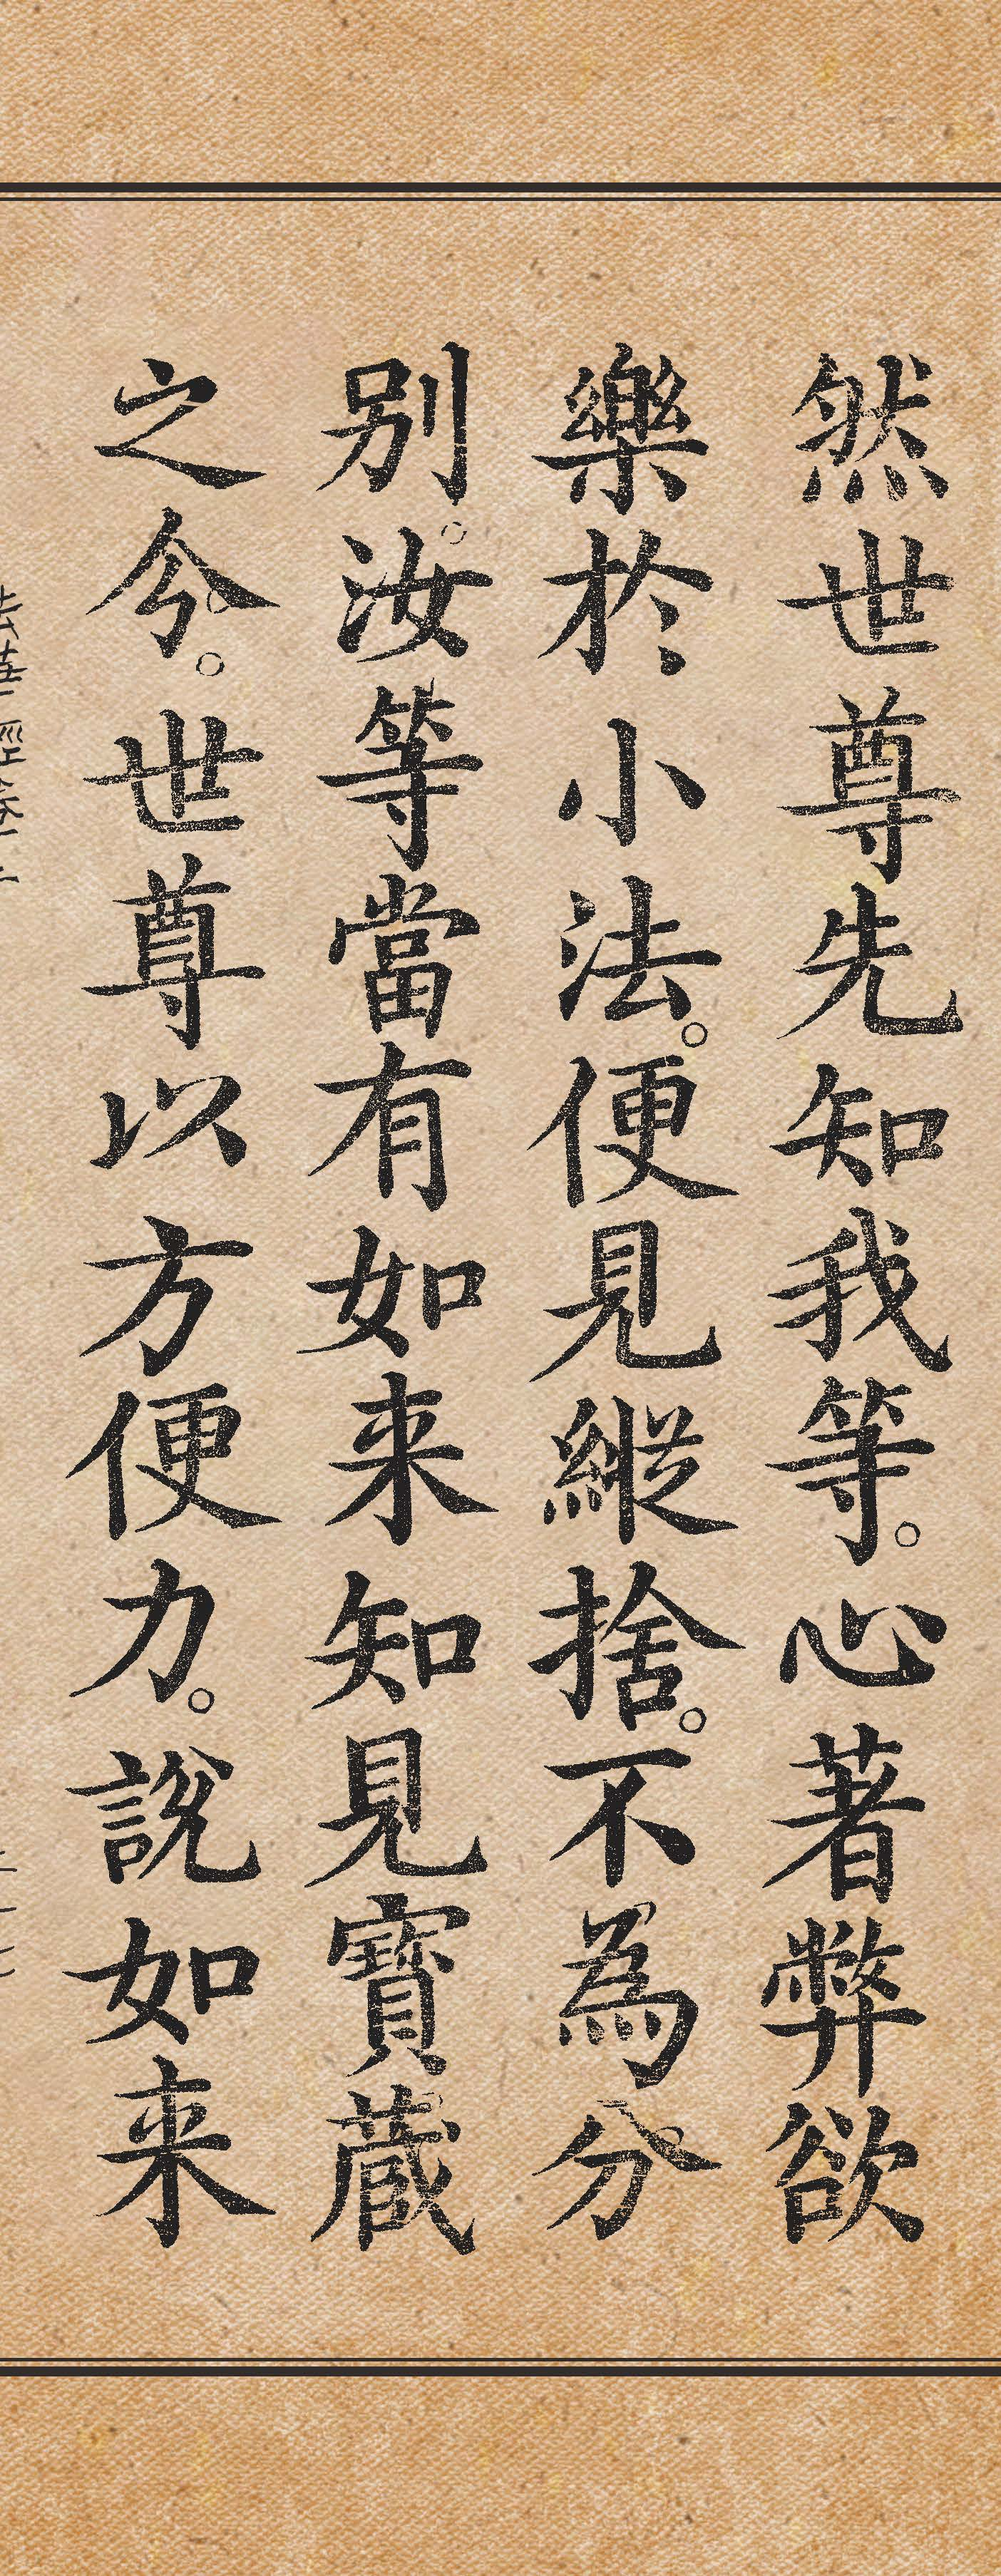 然世尊先知我等。心著弊欲
樂於小法。便見縱捨。不為分
別。汝等當有如来知見寶藏
之今。世尊以方便力。說如来